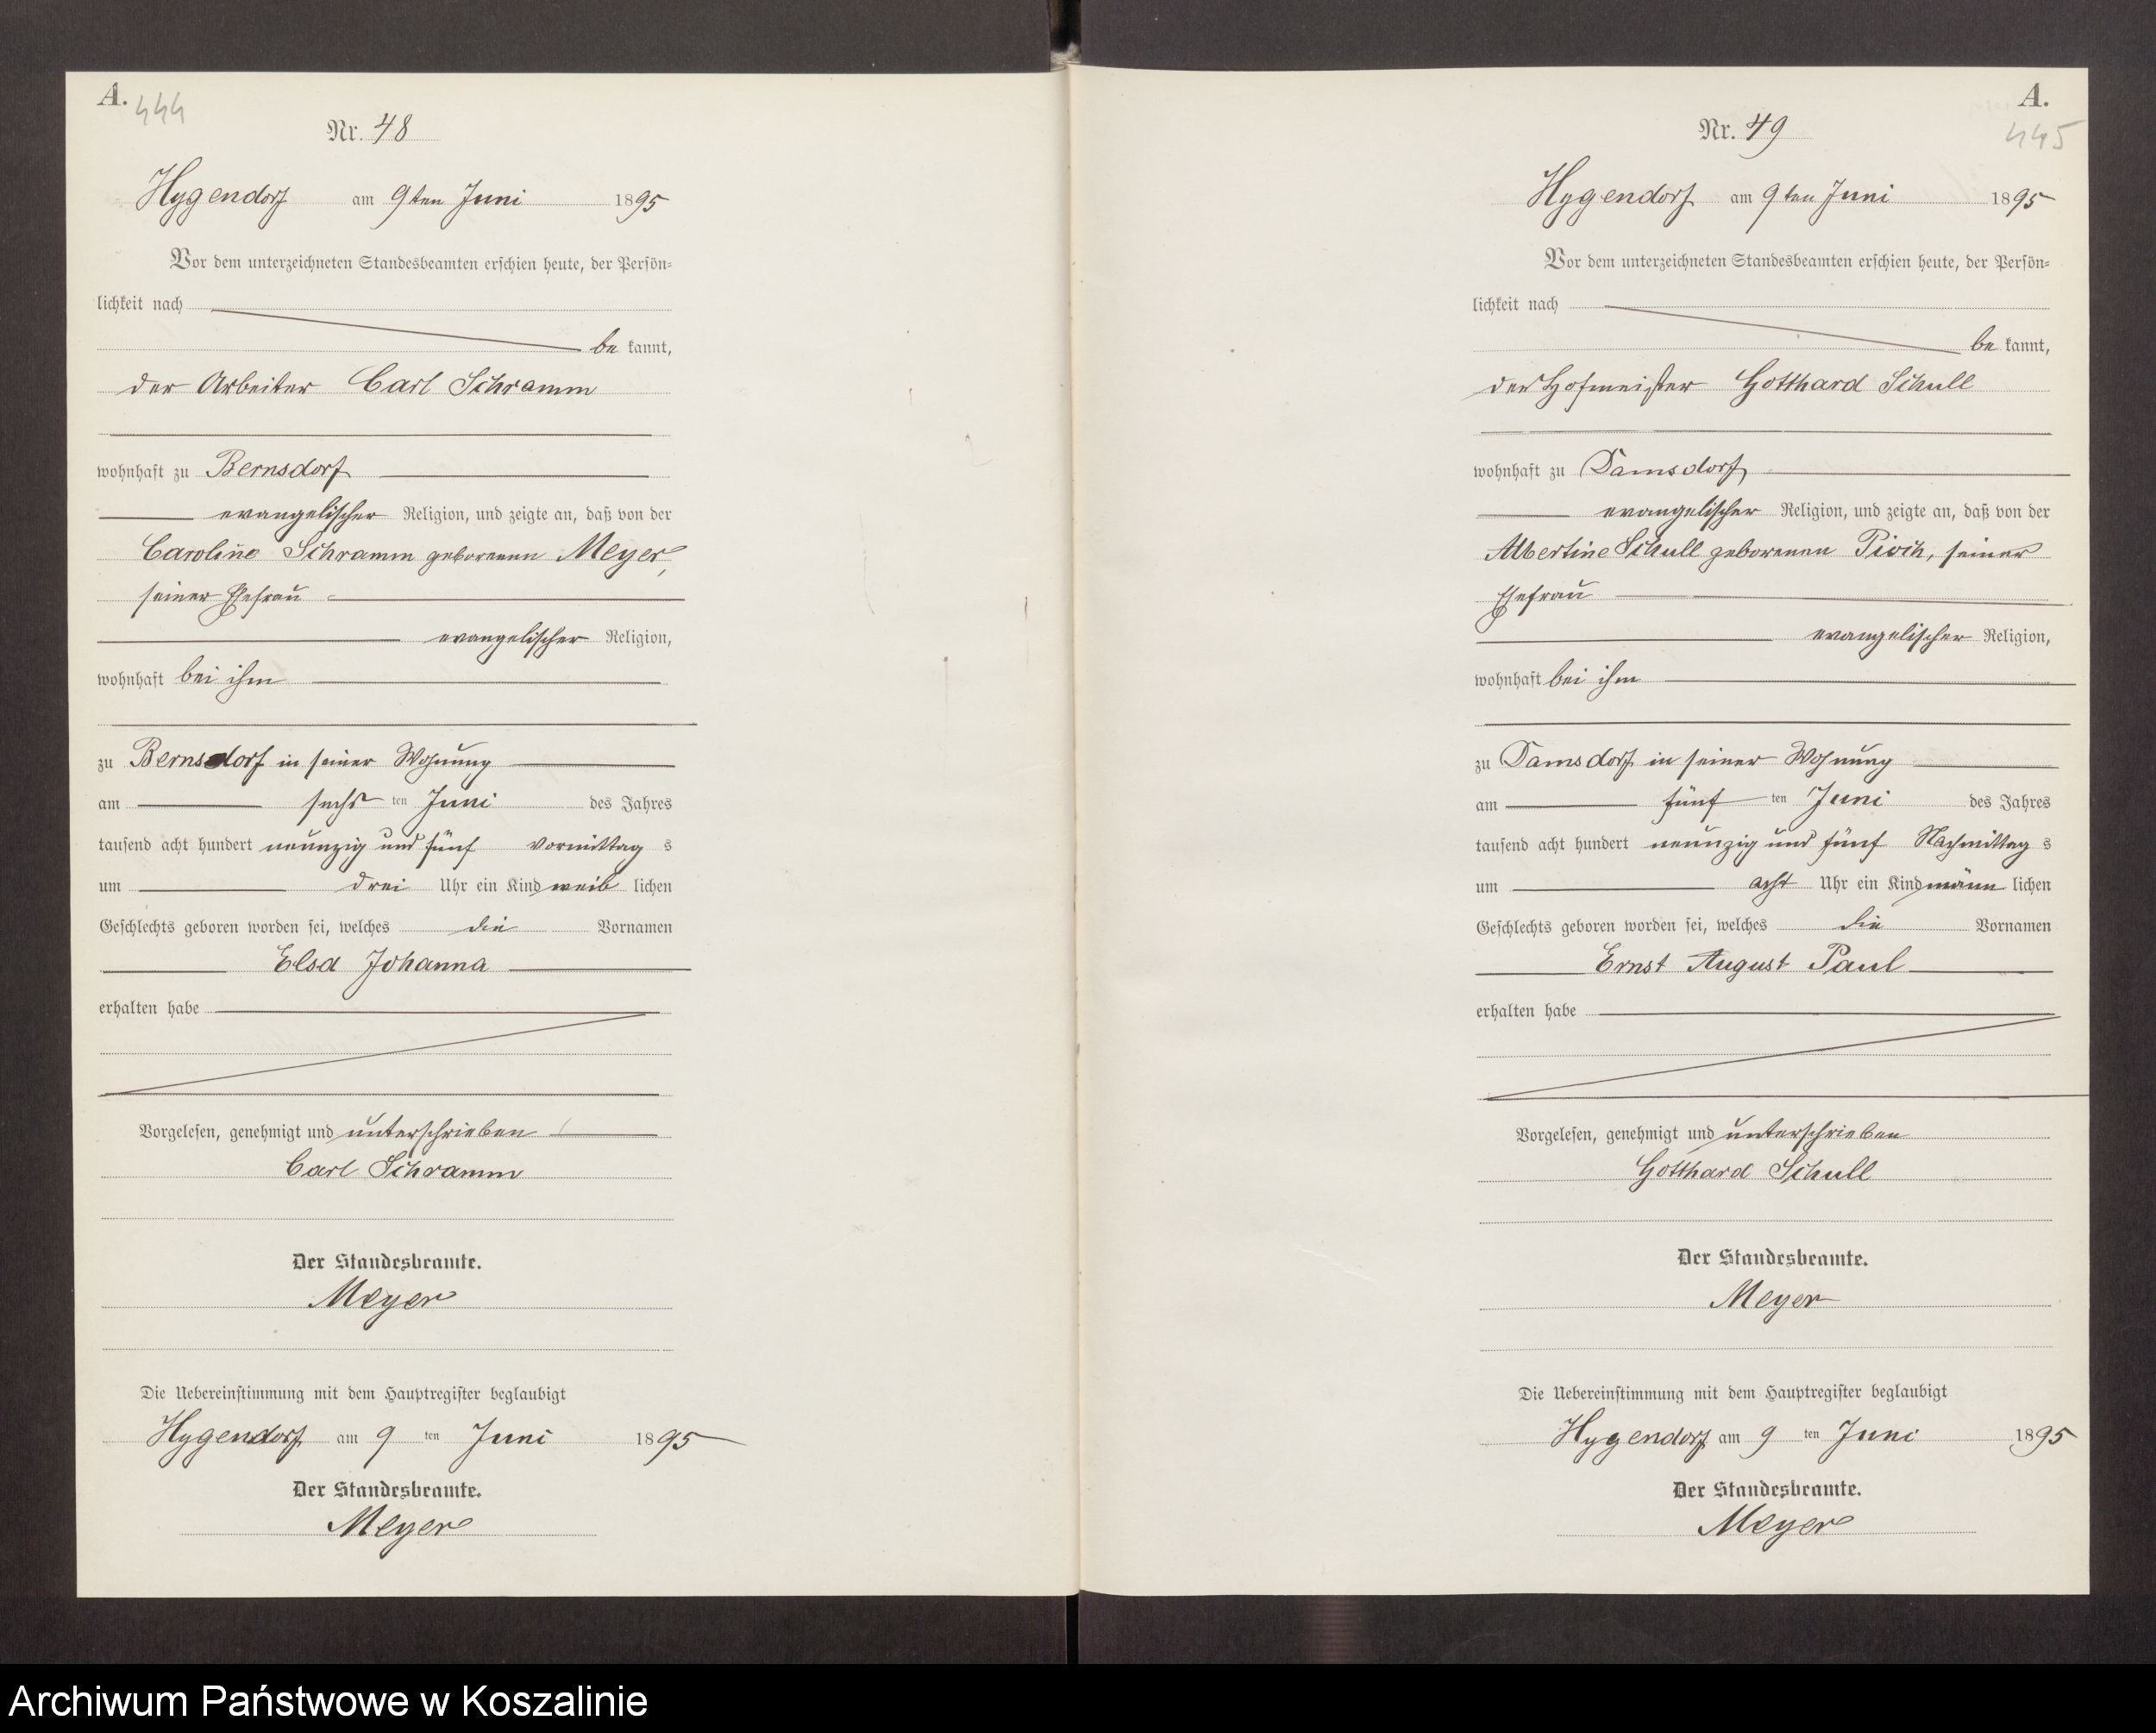 A. 444
Nr. 48
Hygendorf am 9ten Juni 1895
Vor dem unterzeichneten Standesbeamten erschien heute, der Persön-
lichkeit nach
be kannt,
der Arbeiter Carl Schramm
wohnhaft zu Bernsdorf
evangelischer Religion, und zeigte an, daß von der
Caroline Schramm geborenen Meyer,
seiner Ehefrau
evangelischer Religion,
wohnhaft bei ihm
zu Bernsdorf in seiner Wohnung
am sechs ten Juni des Jahres
tausend acht hundert neunzig und fünf vormittag s
um drei Uhr ein Kind weib lichen
Geschlechts geboren worden sei, welches die Vornamen
Elsa Johanna
erhalten habe
Vorgelesen, genehmigt und unterschrieben
Carl Schramm
Der Standesbeamte.
Meyer
Die Uebereinstimmung mit dem Hauptregister beglaubigt
Hygendorf am 9 ten Juni 1895
Der Standesbeamte.
Meyer
A.
445
Nr. 49
Hygendorf am 9ten Juni 1895
Vor dem unterzeichneten Standesbeamten erschien heute, der Persön-
lichkeit nach
be kannt,
der Hofmeister Gotthard Schull
wohnhaft zu Damsdorf
evangelischer Religion, und zeigte an, daß von der
Albertine Schull geborenen Pioch, seiner
Ehefrau
evangelischer Religion,
wohnhaft bei ihm
zu Damsdorf in seiner Wohnung
am fünf ten Juni des Jahres
tausend acht hundert neunzig und fünf Nachmittag s
um acht Uhr ein Kind männ lichen
Geschlechts geboren worden sei, welches die Vornamen
Ernst August Paul
erhalten habe
Vorgelesen, genehmigt und unterschrieben
Gotthard Schull
Der Standesbeamte.
Meyer
Die Uebereinstimmung mit dem Hauptregister beglaubigt
Hygendorf am 9 ten Juni 1895
Der Standesbeamte.
Meyer
Archiwum Państwowe w Koszalinie